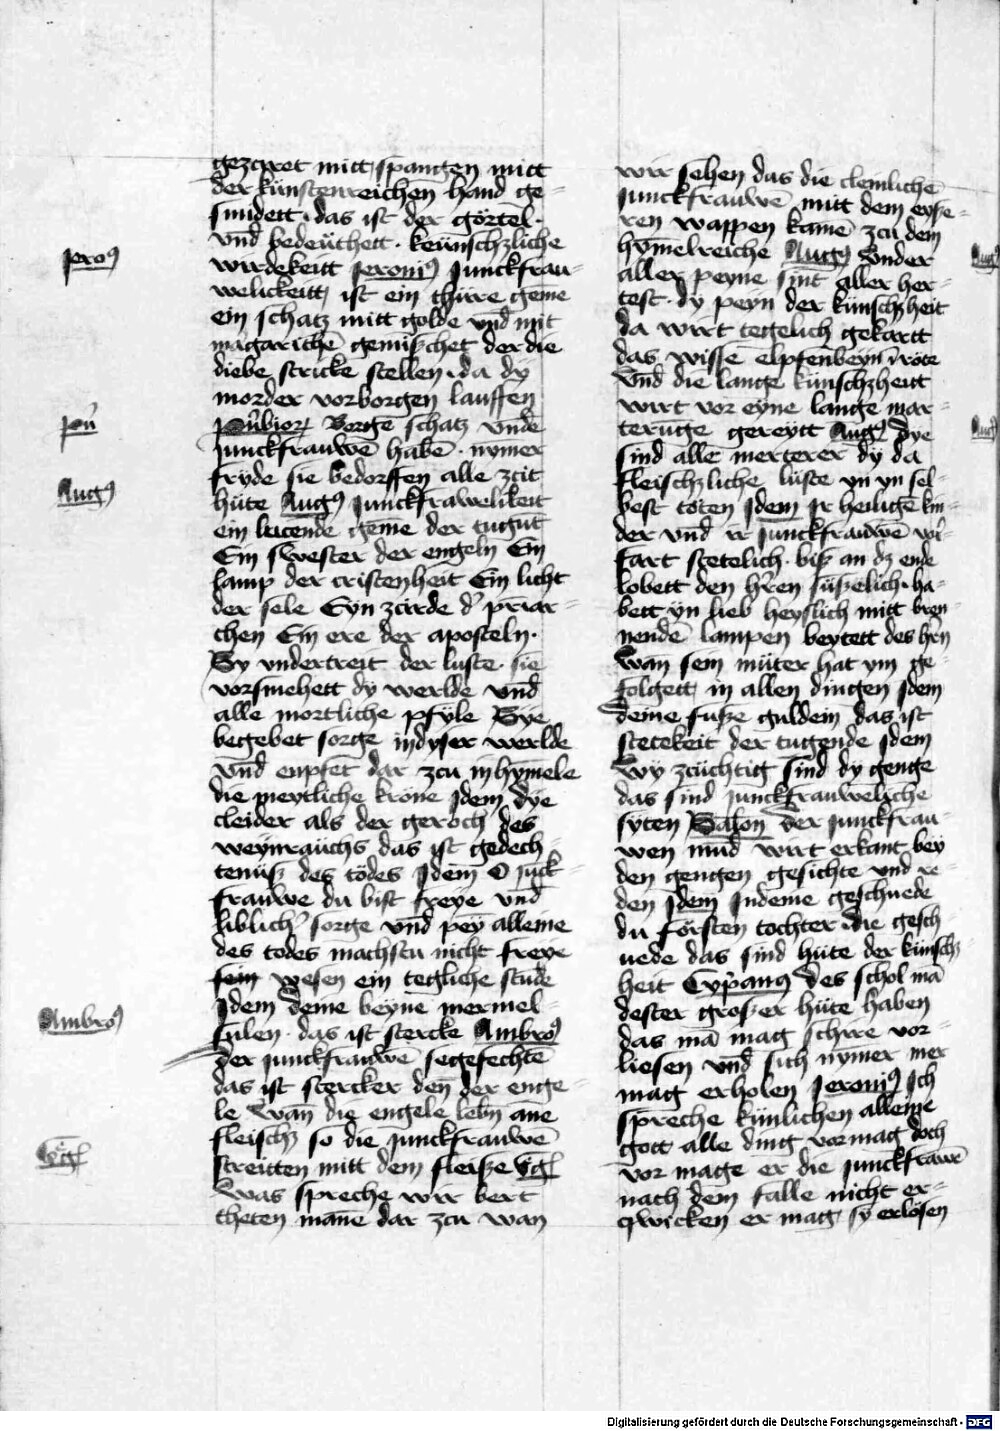 gezciret mitt spangen mitt
der künstenreichen hand ge-
smidett das ist der görtel.
vnd bedeüthett. keünschzliche
wirdekeitt Jeronı9 Junckfrau-
welickeitt ist ein thüre geme
ein schatz mitt golde vnd mit
magarithē gemüschet der die
diebe stricke stellen. da dy
morder vorborgen lauffen
Borgē schatz vnde
Junckfrauwē habē. nymer
fryde sie bedorffen alle zcit
hüte Aug9 Junckfrawelikeit
ein geme der tugūt
Ein swester der engeln Ein
lamp der cristenheit Ein licht
der sele Eyn zcirde d' priar-
chen Ein ere der aposteln.
Sy vndertreit der luste. sie
vorsmehett dy werlde vnd
alle mortliche pfyle Sye
begebet sorge indyser werlde
vnd enpfet dar zcu in hymele
die meytliche krone Jdem dye
cleider als der geroch des
weynrauchs das ist gedech-
tenüß des tödes Jdem O Juck-
frauwe du bist freye vnd
liblich' sorge vnd pey alleine
des todes machstu nicht freye
wesen ein tegliche stūde
Jdem deme beyne mermel-
sulen. das ist stercke Ambro9
der Junckfrauwē segefechtē
das ist stercker den der enge-
le Wan die engele lebn ane
fleischz so die Junckfrauwē
streitten mitt dem fleisze
Was spreche wir bert
theten mane dar zcu wan
Jero9
Aug9
Ambro9
wir sehen das die cleinlichē
Junckfrauwē mitt dem eyse-
ren wappen kame zcu dem
hymelreiche Aug9 Vnder
aller peyne sint aller her-
test. dy peyn der künschzheit
da wirt tegelich gekartt
das wisse elpfenbeyn röte
Vnd die lange künschzheit
wirt vor eyne lange mar-
teruge gereytt Aug9 dye
sind alle merterer dy da
fleischzliche lüste yn yn sel-
best töten Jdem Jr heiligē kin-
der vnd ir Junckfrauwē wi'-
fart stetelich. biß an dz ende
lobett den h'ren süszelich. ha-
bett yn lieb heyslich mitt bren-
nende lampen beytett des h'rn
wan sein müter hat ym ge-
folgett in allen dingen Jdem
Deine füsze guldein das ist
stetekeit der tugende Jdem
Wy zcüchtig sind dy genge
das sind Junckfrauweliche
syten Salon Der Junckfrau-
wen müd wirt erkant bey
den gengen gesichte vnd re-
den Jdem Jndeme geschuede
du försten tochter. die gesch-
uede das sind hüte der künschz-
heit Cyp'an9 Des schol mā
dester groszer hüte haben
das mā mag schire vor-
liesen vnd sich nymer mer
mag erholen Jeronı9 Jch
spreche künlichen alleine
gott alle ding vormag doch
vor mage er die Junckfraw
nach dem falle nicht er-
qwicken er mag sy erlösen
Digitalisierung gefördert durch die Deutsche Forschungsgemeinschaft - DFG